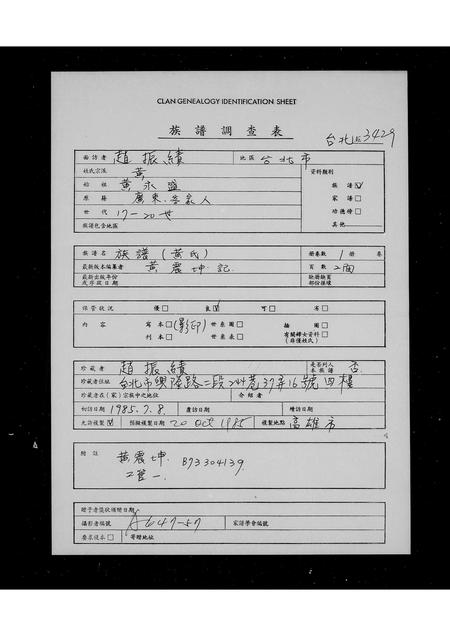 CLAN GENEALOGY IDENTIFICATION SHEET
族譜調查表
台北 3429
面訪者 趙振績 地區 台北市
姓式宗派 黃 資料類別
始祖 黃永盛 族譜☑
原籍 廣東.客家人 家譜□
世代 17-20世 功德榜□
族譜包含地區 其他
族譜名 族譜(黃氏) 冊卷數 1 冊 卷
最新版本編纂者 黃震坤.記 頁數 2面
最新出版年份 缺冊缺頁
或序跋日期 部份描喙
保管狀況 優□ 良☑ 可□ 劣□
內容 寫本□(影印) 世系圖□ 插圖□
刊本□ 世系表□ 有關婦女資料□
(非僅姓氏)
珍藏者 趙振績 是否列入本族譜 否
珍藏者住址 台北市興隆路二段244巷37弄16號四樓
珍藏者在(家)宗族中之地位 介紹者
初訪日期 1985.7.8. 覆訪日期 增訪日期
允許複製☑ 預擬複製日期 20 Oct 1985 複製地點 高雄市
附註 黃震坤. B73304139
贈予者獎狀頒贈日期
攝影者編號 A647-57 家譜學會編號
要求復本□ 寄贈地址